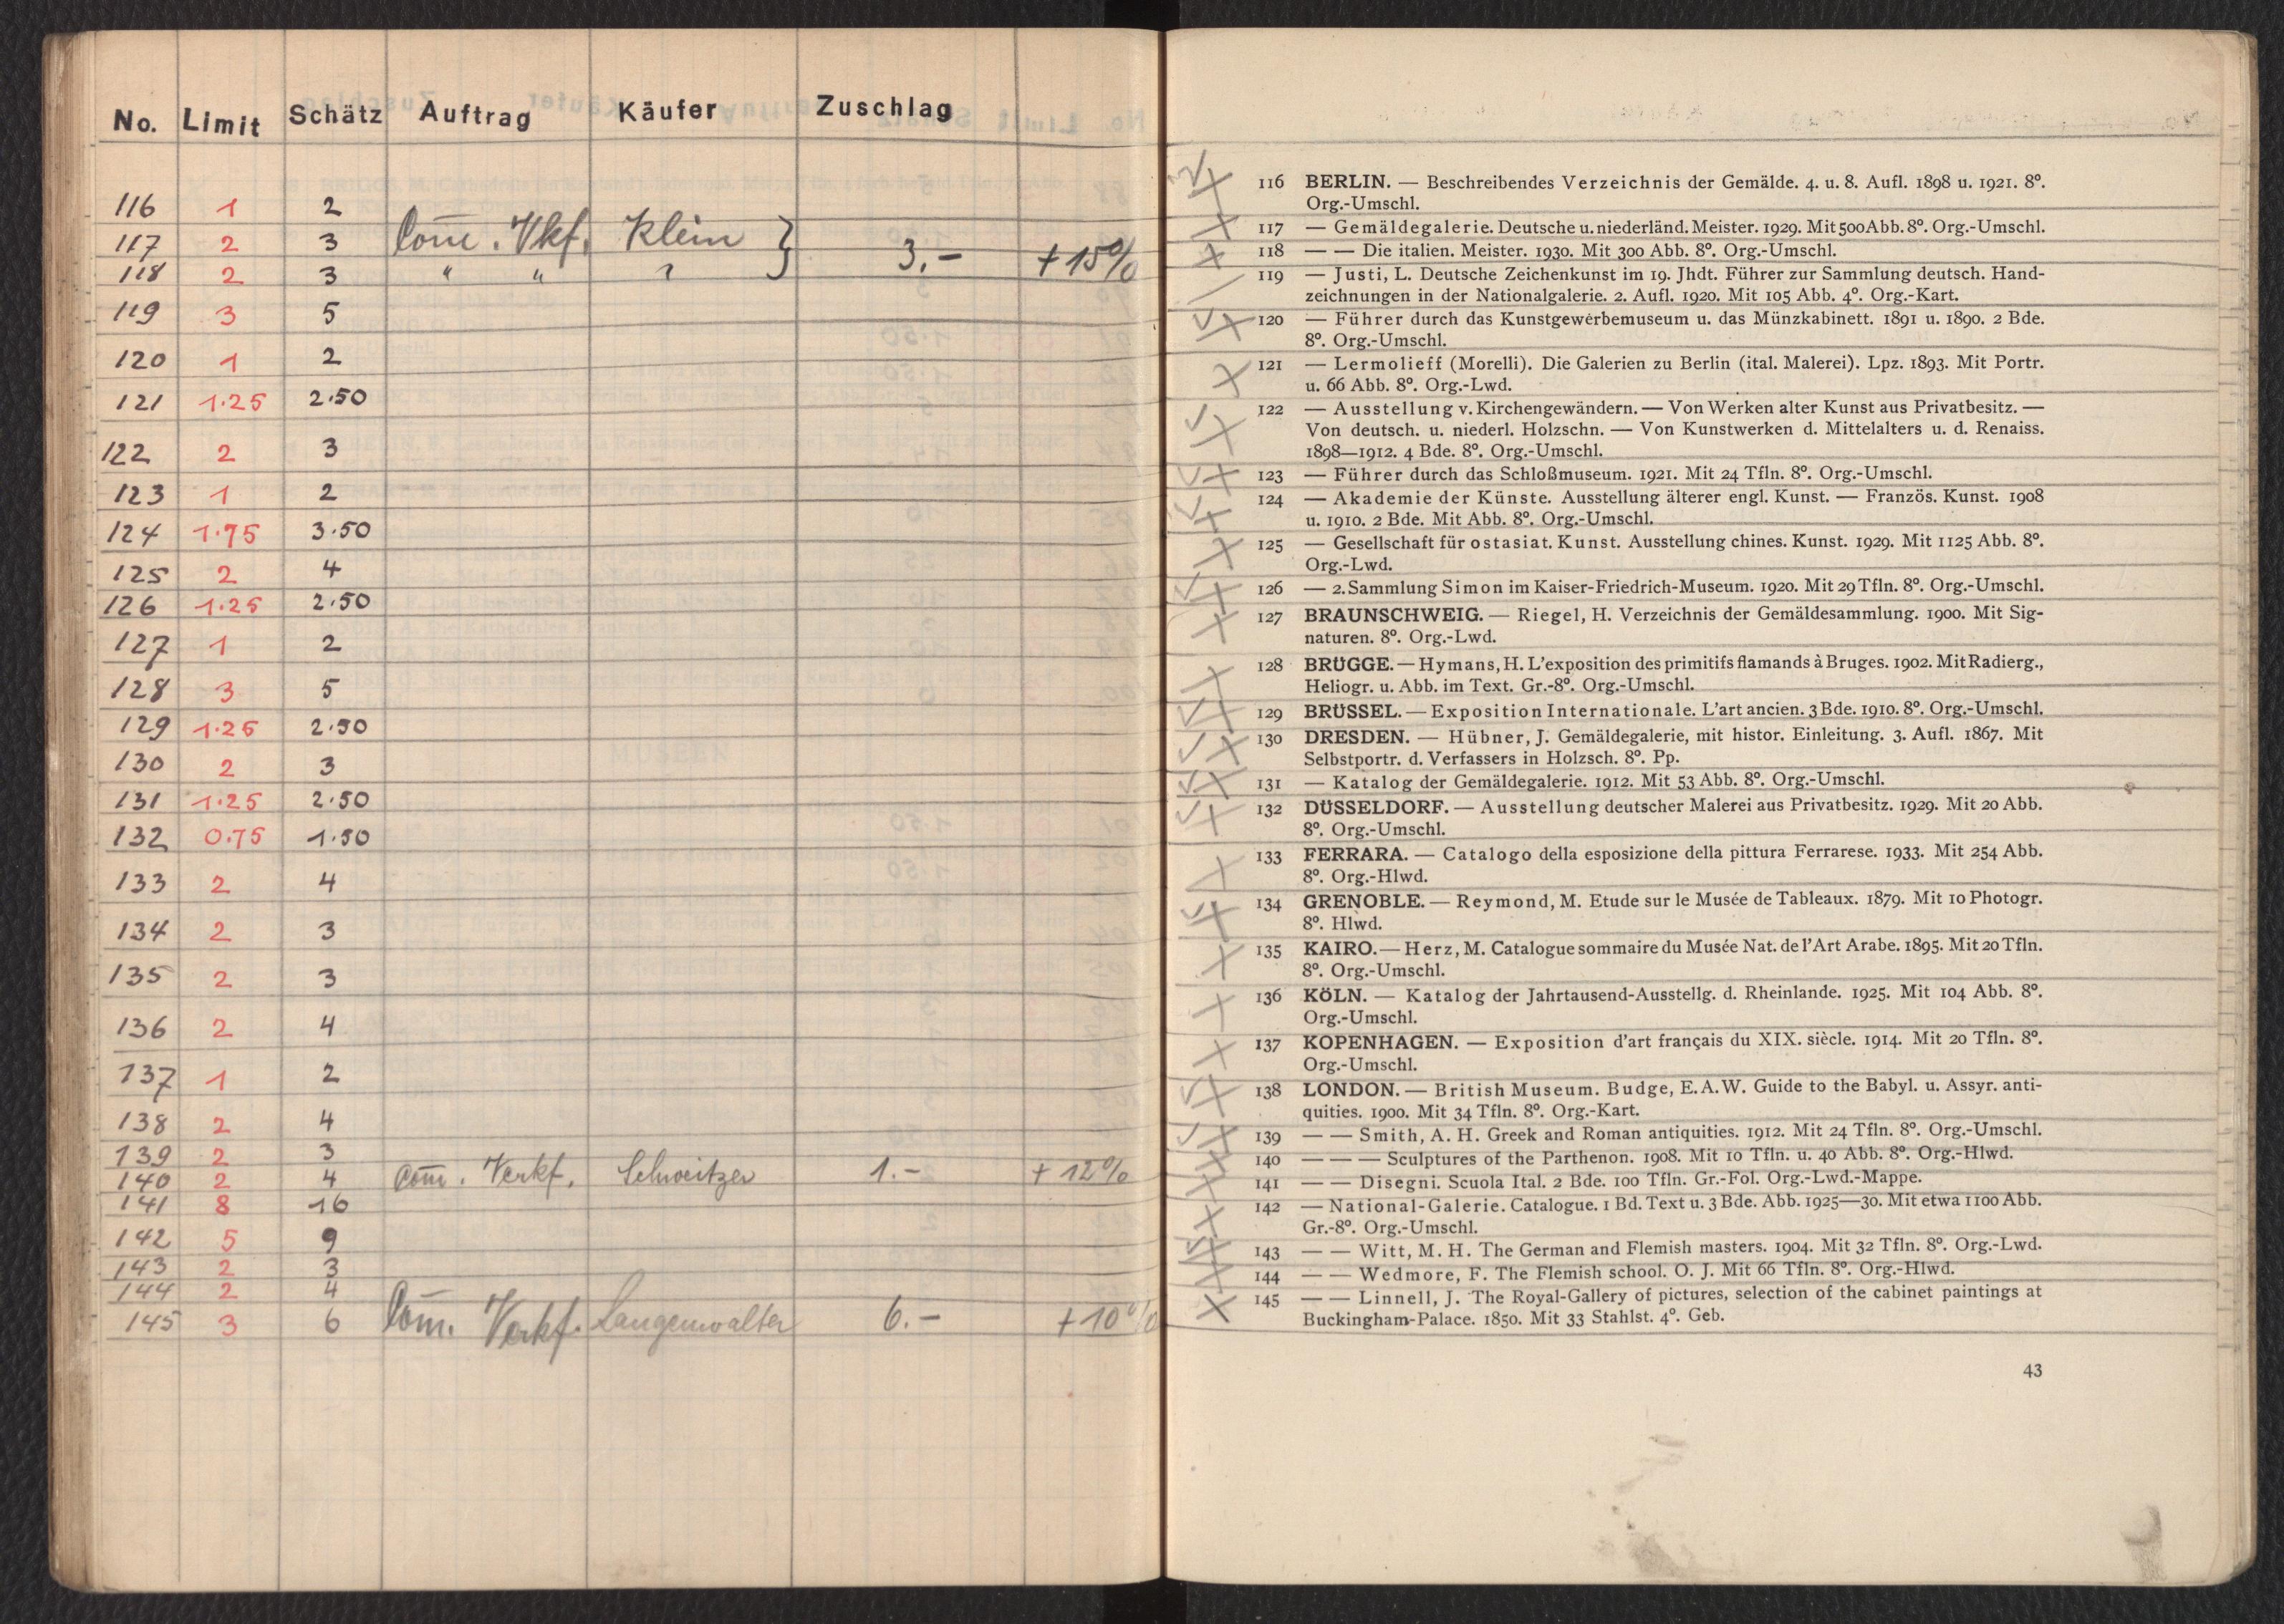 No. Limit Schätz Auftrag Käufer Zuschlag
116 1 2
117 2 3 Com̄. Vkf. Klein
118 2 3 " " " } 3.- +15%
119 3 5
120 1 2
121 1.25 2.50
122 2 3
123 1 2
124 1.75 3.50
125 2 4
126 1.25 2.50
127 1 2
128 3 5
129 1.25 2.50
130 2 3
131 1.25 2.50
132 0.75 1.50
133 2 4
134 2 3
135 2 3
136 2 4
137 1 2
138 2 4
139 2 3
140 2 4 Com̄. Verkf. Schweitzer 1.- +12%
141 8 16
142 5 9
143 2 3
144 2 4
145 3 6 Com̄. Verkf. Langenwalter 6.- +10%
116 BERLIN. — Beschreibendes Verzeichnis der Gemälde. 4. u. 8. Aufl. 1898 u. 1921. 8⁰.
Org.-Umschl.
117 — Gemäldegalerie. Deutsche u. niederländ. Meister. 1929. Mit 500 Abb. 8⁰. Org.-Umschl.
118 — — Die italien. Meister. 1930. Mit 300 Abb. 8⁰. Org.-Umschl.
119 — Justi, L. Deutsche Zeichenkunst im 19. Jhdt. Führer zur Sammlung deutsch. Hand-
zeichnungen in der Nationalgalerie. 2. Aufl. 1920. Mit 105 Abb. 4⁰. Org.-Kart.
120 — Führer durch das Kunstgewerbemuseum u. das Münzkabinett. 1891 u. 1890. 2 Bde.
8⁰. Org.-Umschl.
121 — Lermolieff (Morelli). Die Galerien zu Berlin (ital. Malerei). Lpz. 1893. Mit Portr.
u. 66 Abb. 8⁰. Org.-Lwd.
122 — Ausstellung v. Kirchengewändern. — Von Werken alter Kunst aus Privatbesitz. —
Von deutsch. u. niederl. Holzschn. — Von Kunstwerken d. Mittelalters u. d. Renaiss.
1898—1912. 4 Bde. 8⁰. Org.-Umschl.
123 — Führer durch das Schloßmuseum. 1921. Mit 24 Tfln. 8⁰. Org.-Umschl.
124 — Akademie der Künste. Ausstellung älterer engl. Kunst. — Französ. Kunst. 1908
u. 1910. 2 Bde. Mit Abb. 8⁰. Org.-Umschl.
125 — Gesellschaft für ostasiat. Kunst. Ausstellung chines. Kunst. 1929. Mit 1125 Abb. 8⁰.
Org.-Lwd.
126 — 2. Sammlung Simon im Kaiser-Friedrich-Museum. 1920. Mit 29 Tfln. 8⁰. Org.-Umschl.
127 BRAUNSCHWEIG. — Riegel, H. Verzeichnis der Gemäldesammlung. 1900. Mit Sig-
naturen. 8⁰. Org.-Lwd.
128 BRÜGGE. — Hymans, H. L'exposition des primitifs flamands à Bruges. 1902. Mit Radierg.,
Heliogr. u. Abb. im Text. Gr.-8⁰. Org.-Umschl.
129 BRÜSSEL. — Exposition Internationale. L'art ancien. 3 Bde. 1910. 8⁰. Org.-Umschl.
130 DRESDEN. — Hübner, J. Gemäldegalerie, mit histor. Einleitung. 3. Aufl. 1867. Mit
Selbstportr. d. Verfassers in Holzsch. 8⁰. Pp.
131 — Katalog der Gemäldegalerie. 1912. Mit 53 Abb. 8⁰. Org.-Umschl.
132 DÜSSELDORF. — Ausstellung deutscher Malerei aus Privatbesitz. 1929. Mit 20 Abb.
8⁰. Org.-Umschl.
133 FERRARA. — Catalogo della esposizione della pittura Ferrarese. 1933. Mit 254 Abb.
8⁰. Org.-Hlwd.
134 GRENOBLE. — Reymond, M. Etude sur le Musée de Tableaux. 1879. Mit 10 Photogr.
8⁰. Hlwd.
135 KAIRO. — Herz, M. Catalogue sommaire du Musée Nat. de l'Art Arabe. 1895. Mit 20 Tfln.
8⁰. Org.-Umschl.
136 KÖLN. — Katalog der Jahrtausend-Ausstellg. d. Rheinlande. 1925. Mit 104 Abb. 8⁰.
Org.-Umschl.
137 KOPENHAGEN. — Exposition d'art français du XIX. siècle. 1914. Mit 20 Tfln. 8⁰.
Org.-Umschl.
138 LONDON. — British Museum. Budge, E. A. W. Guide to the Babyl. u. Assyr. anti-
quities. 1900. Mit 34 Tfln. 8⁰. Org.-Kart.
139 — — Smith, A. H. Greek and Roman antiquities. 1912. Mit 24 Tfln. 8⁰. Org.-Umschl.
140 — — — Sculptures of the Parthenon. 1908. Mit 10 Tfln. u. 40 Abb. 8⁰. Org.-Hlwd.
141 — — Disegni. Scuola Ital. 2 Bde. 100 Tfln. Gr.-Fol. Org.-Lwd.-Mappe.
142 — National-Galerie. Catalogue. 1 Bd. Text u. 3 Bde. Abb. 1925—30. Mit etwa 1100 Abb.
Gr.-8⁰. Org.-Umschl.
143 — — Witt, M. H. The German and Flemish masters. 1904. Mit 32 Tfln. 8⁰. Org.-Lwd.
144 — — Wedmore, F. The Flemish school. O. J. Mit 66 Tfln. 8⁰. Org.-Hlwd.
145 — — Linnell, J. The Royal-Gallery of pictures, selection of the cabinet paintings at
Buckingham-Palace. 1850. Mit 33 Stahlst. 4⁰. Geb.
43